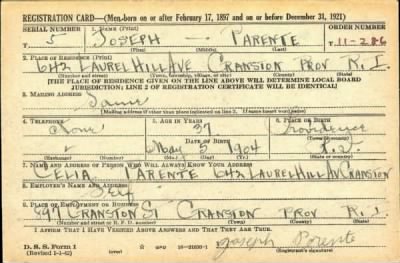 REGISTRATION CARD—(Men born on or after February 17, 1897 and on or before December 31, 1921)
SERIAL NUMBER 1. NAME (Print) ORDER NUMBER
5 JOSEPH — PARENTE 11-286
(First) (Middle) (Last)
2. PLACE OF RESIDENCE (Print)
642 LAUREL HILL AVE CRANSTON PROV R.I.
(Number and street) (Town, township, village, or city) (County) (State)
[THE PLACE OF RESIDENCE GIVEN ON THE LINE ABOVE WILL DETERMINE LOCAL BOARD
JURISDICTION; LINE 2 OF REGISTRATION CERTIFICATE WILL BE IDENTICAL]
3. MAILING ADDRESS
Same
[Mailing address if other than place indicated on line 2. If same insert word same]
4. TELEPHONE 5. AGE IN YEARS 6. PLACE OF BIRTH
None 37 Providence
DATE OF BIRTH
May 5 1904 R.I.
7. NAME AND ADDRESS OF PERSON WHO WILL ALWAYS KNOW YOUR ADDRESS
CELIA PARENTE 642 LAUREL HILL AV CRANSTON
8. EMPLOYER'S NAME AND ADDRESS
Self
9. PLACE OF EMPLOYMENT OR BUSINESS
CRANSTON ST CRANSTON PROV R.I.
(Number and street or R. F. D. number) (Town) (County) (State)
I AFFIRM THAT I HAVE VERIFIED ABOVE ANSWERS AND THAT THEY ARE TRUE.
D. S. S. Form 1
(Revised 1-1-42) Joseph Parente
(Registrant's signature)